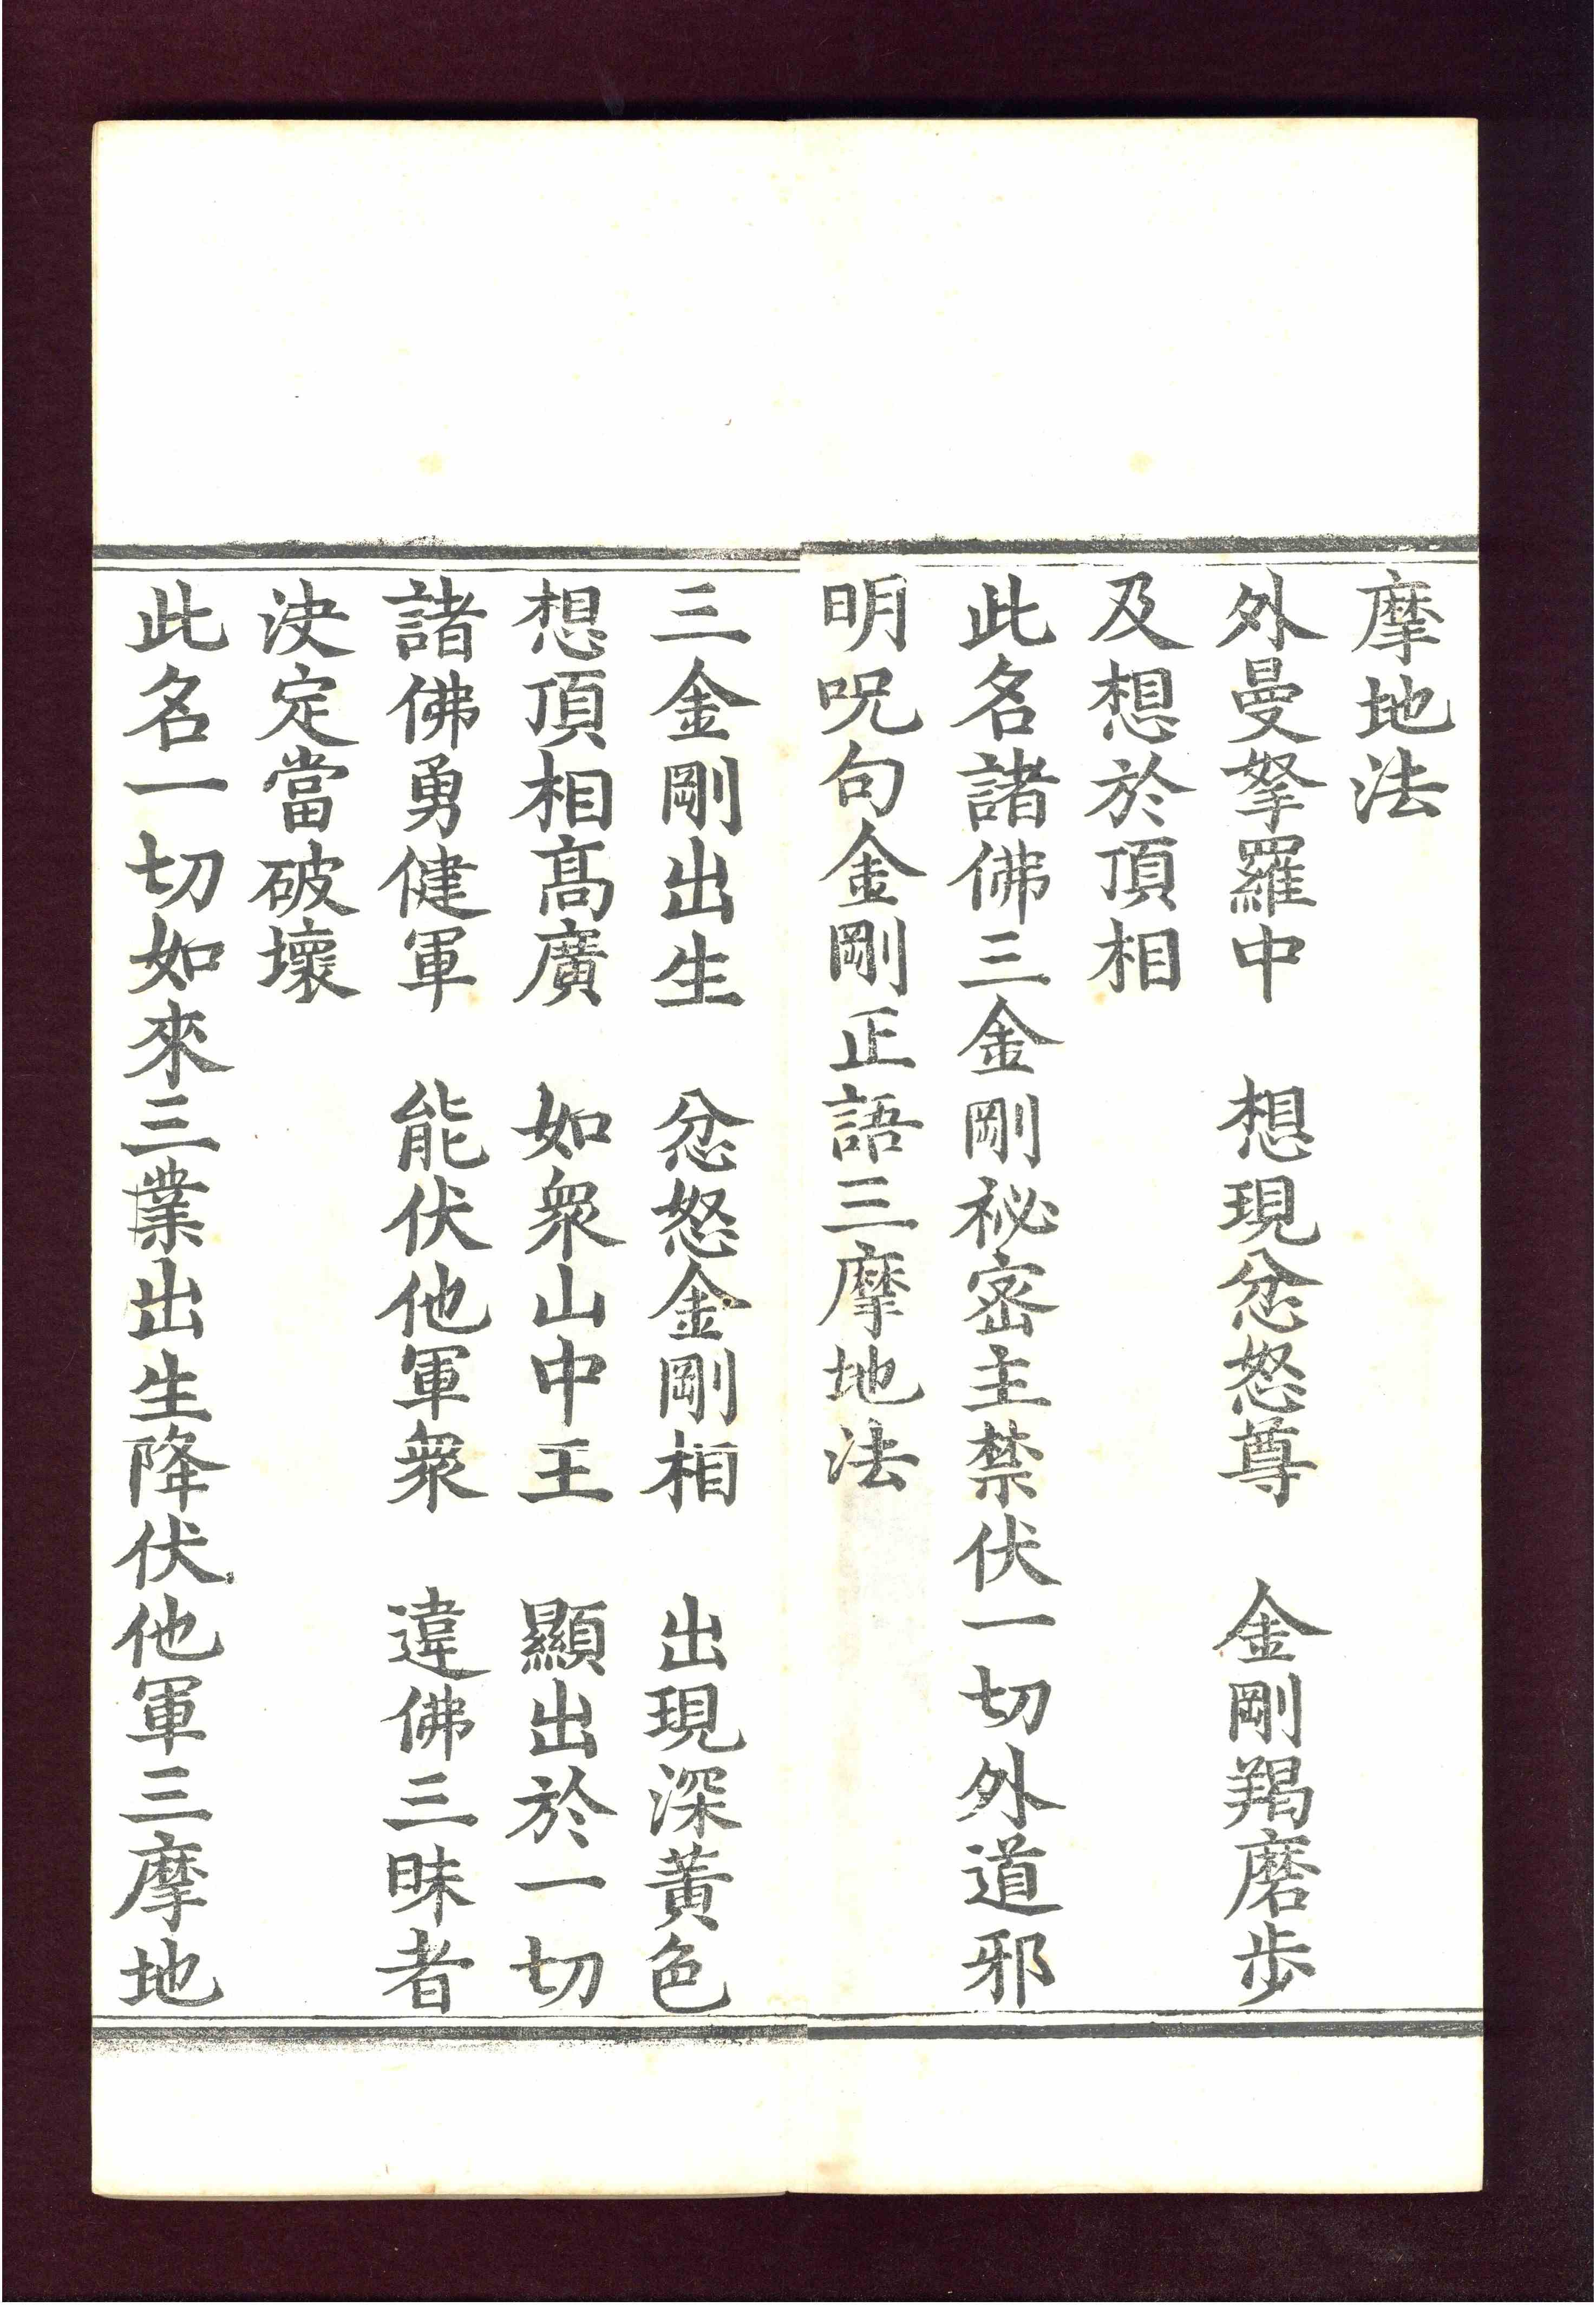 摩地法
外曼拏羅中　想現忿怒尊　金剛羯磨步
及想於頂相
此名諸佛三金剛秘密主禁伏一切外道邪
明呪句金剛正語三摩地法
三金剛出生　忿怒金剛相　出現深黃色
想頂相高廣　如衆山中王　顯出於一切
諸佛勇健軍　能伏他軍衆　違佛三昧者
決定當破壞
此名一切如來三業出生降伏他軍三摩地